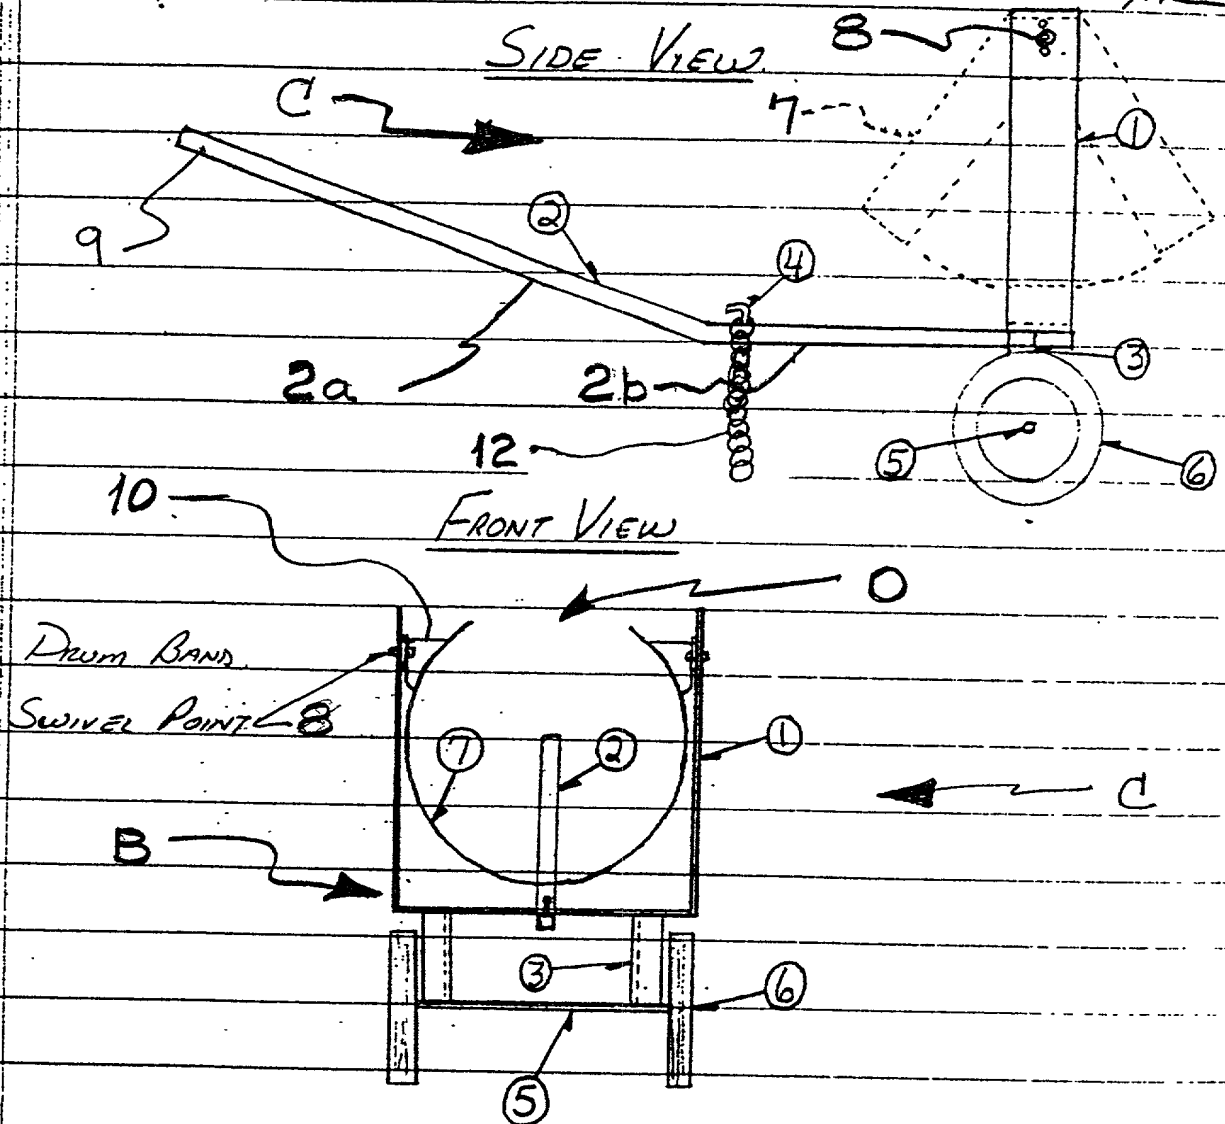 SIDE VIEW
8
C
7
1
9
2
4
2a
2b
3
12
5
6
10
FRONT VIEW
O
DRUM BAND
SWIVEL POINT 8
7
2
1
C
B
3
6
5